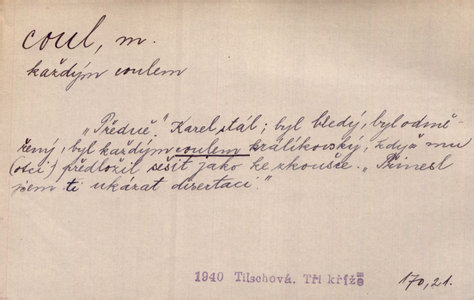 coul, m.
každým coulem
„Předně." Karel stál; byl bledý, byl odmě-
řený, byl každým coulem králíkovský, když mu
(otci) předložil sešit jako ke zkoušce. „Přinesl
jsem ti ukázat disertaci."
1940 Tilschová. Tři kříže
170,21.